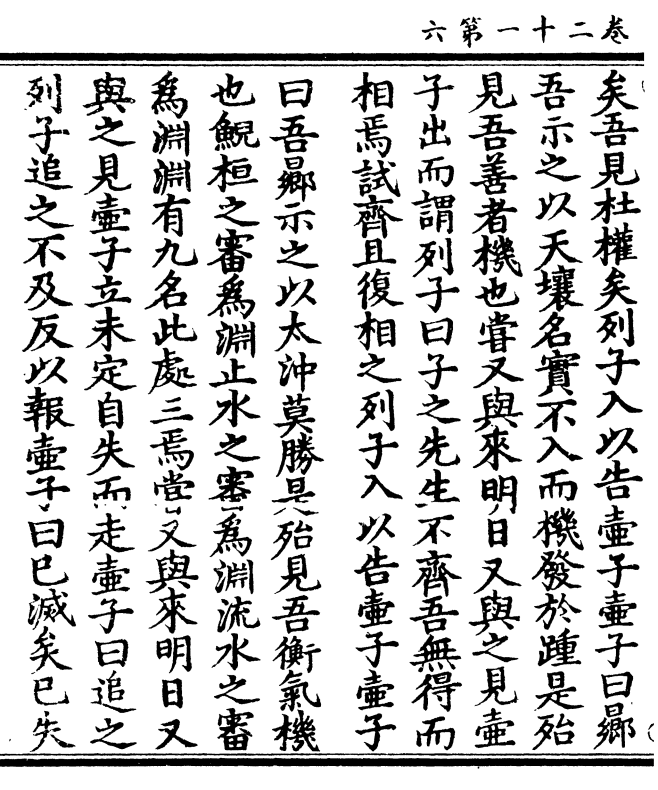 六第一十二卷
矣吾見杜權矣列子入以告壷子壷子曰鄉
吾示之以天壤名實不入而機發於踵是殆
見吾善者機也嘗又與來明日又與之見壷
子出而謂列子曰子之先生不齊吾無得而
相焉試齊且復相之列子入以告壷子壷子
曰吾鄉示之以太沖莫勝是殆見吾衡氣機
也鯢桓之審爲淵止水之審爲淵流水之審
爲淵淵有九名此處三焉嘗又與來明日又
與之見壷子立未定自失而走壷子曰追之
列子追之不及反以報壷子曰已滅矣已失